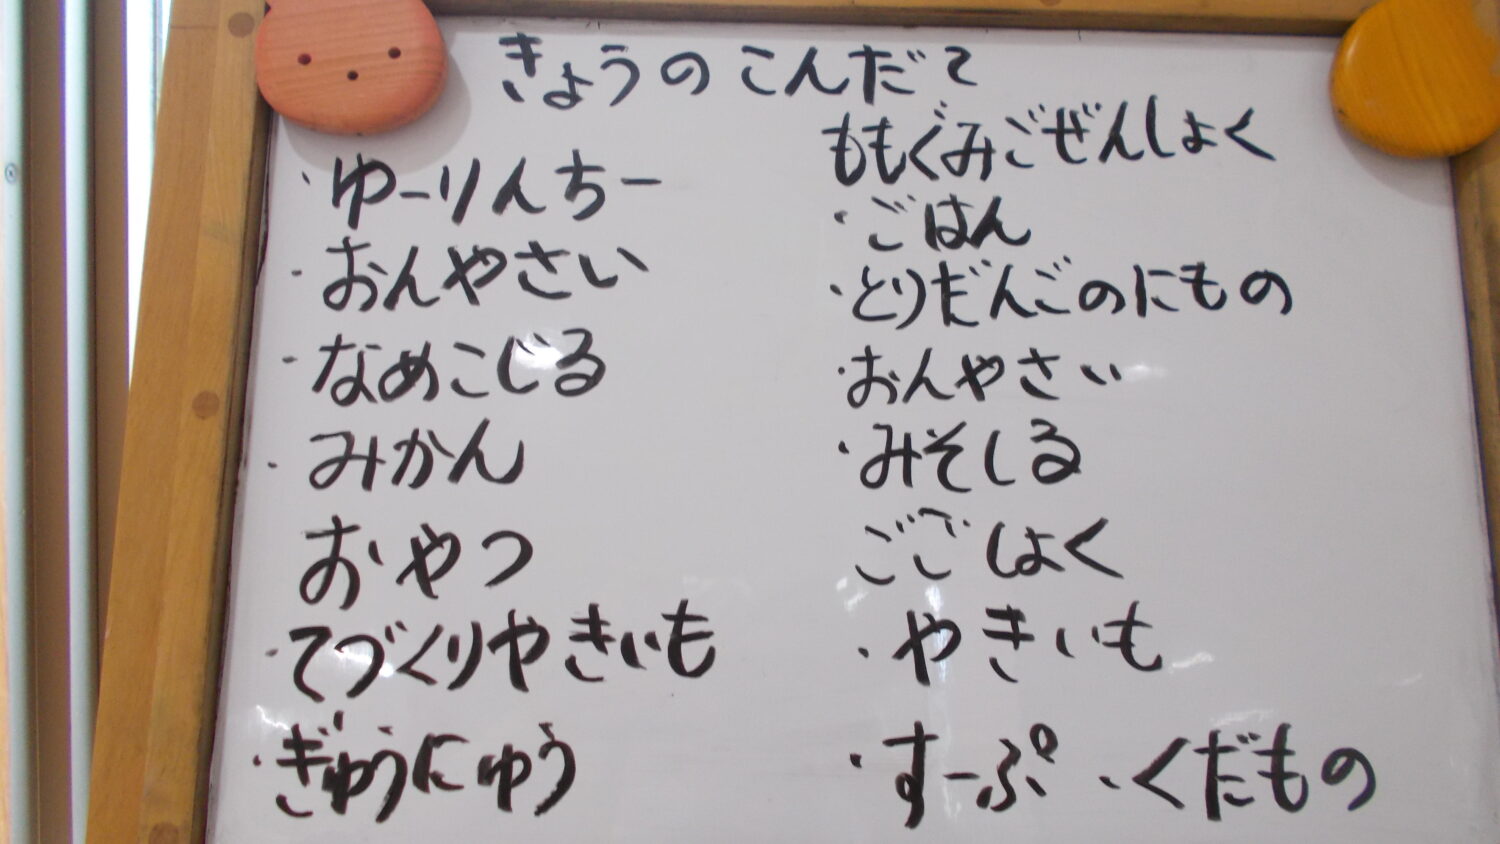 きょうのこんだて
・ゆーりんちー
・おんやさい
・なめこじる
・みかん
おやつ
・てづくりやきいも
・ぎゅうにゅう
ももぐみごぜんしょく
・ごはん
・とりだんごのにもの
・おんやさい
・みそしる
ごごしょく
・やきいも
・すーぷ ・くだもの